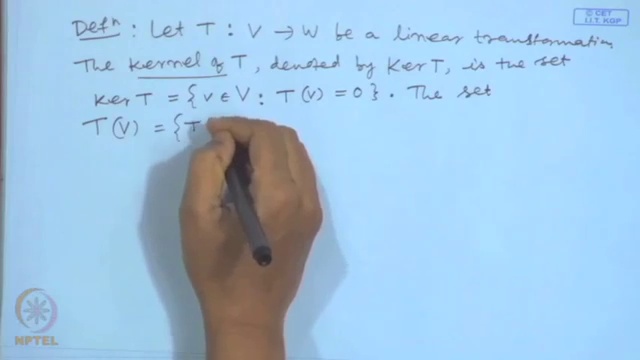 © CET
I.I.T. KGP
Defⁿ : Let T : V → W be a linear transformation.
The kernel of T, denoted by Ker T, is the set
Ker T = { v ∈ V : T(v) = 0 }. The set
T(V) = { T
NPTEL